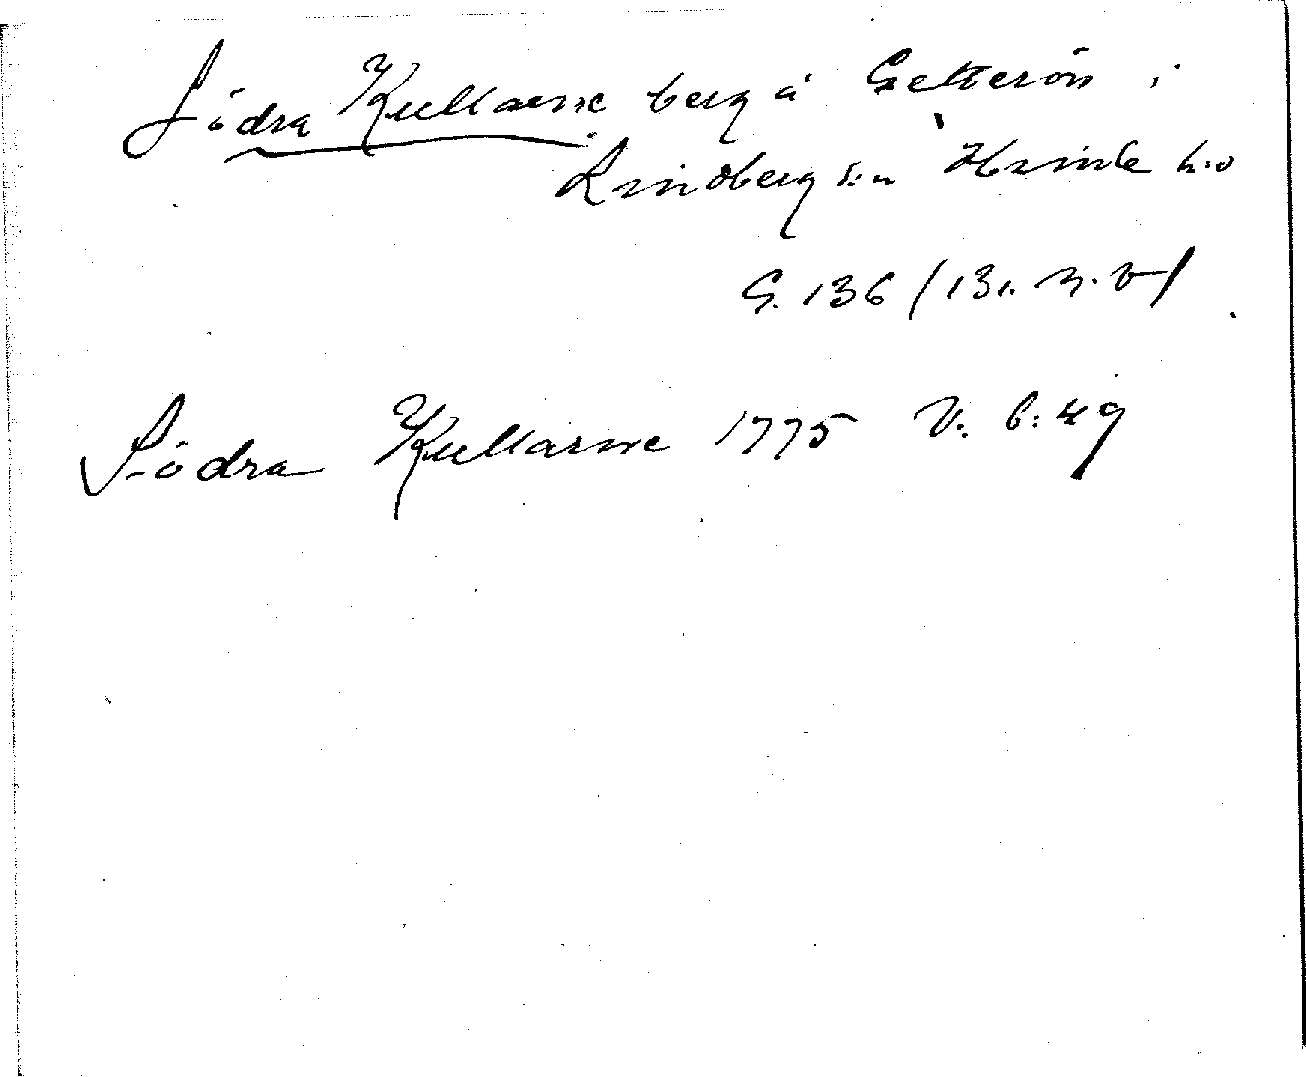 Södra Kullarne berg å Getterön i
Lindberg s:n Himle h:d
G. 136 /131. n.v/
Södra Kullarne 1775 V. 6:49